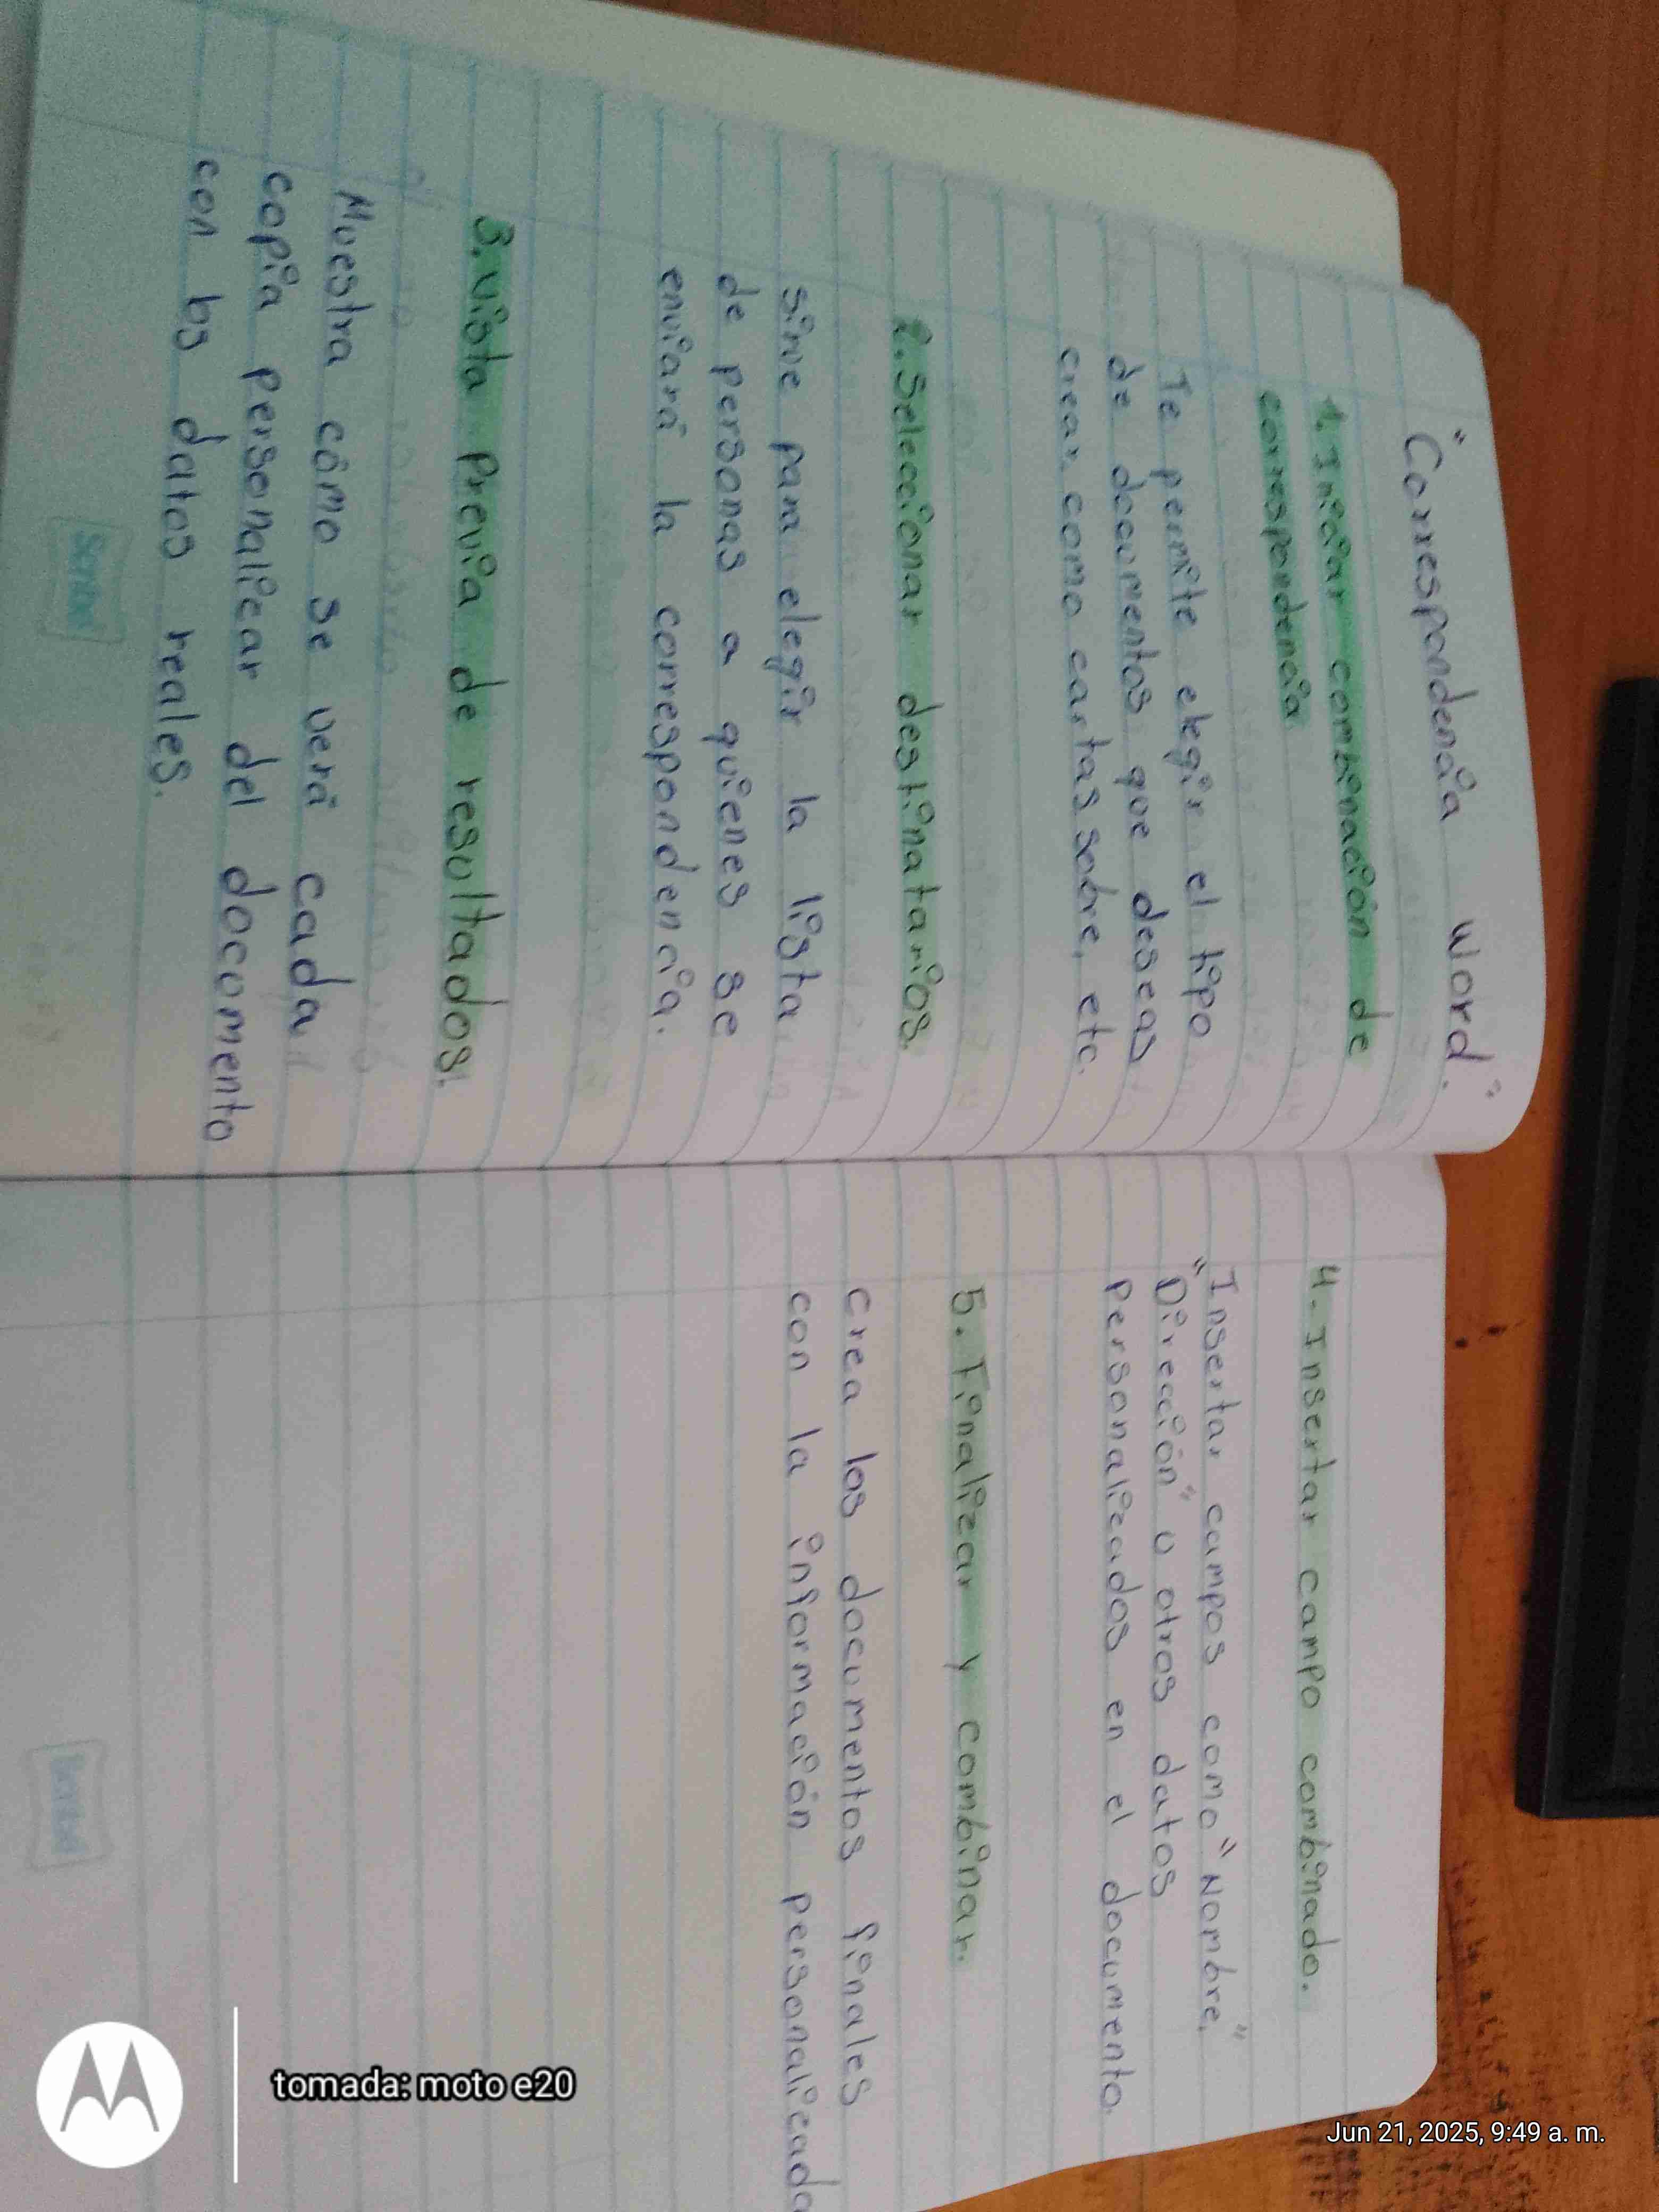 "Correspondencia Word."
1. Iniciar combinación de
correspondencia
Te permite elegir el tipo
de documentos que deseas
crear, como cartas sobre, etc.
2. Seleccionar destinatarios.
Sirve para elegir la lista
de personas a quienes se
enviará la correspondencia.
3. Vista Previa de resultados.
Muestra cómo se verá cada
copia personalizar del documento
con los datos reales.
Scribel
4. Insertar campo combinado.
Insertar campos como "Nombre,"
"Dirección" u otros datos
personalizados en el documento.
5. Finalizar y combinar.
Crea los documentos finales
con la información personalizada
Scribel
tomada: moto e20
Jun 21, 2025, 9:49 a. m.